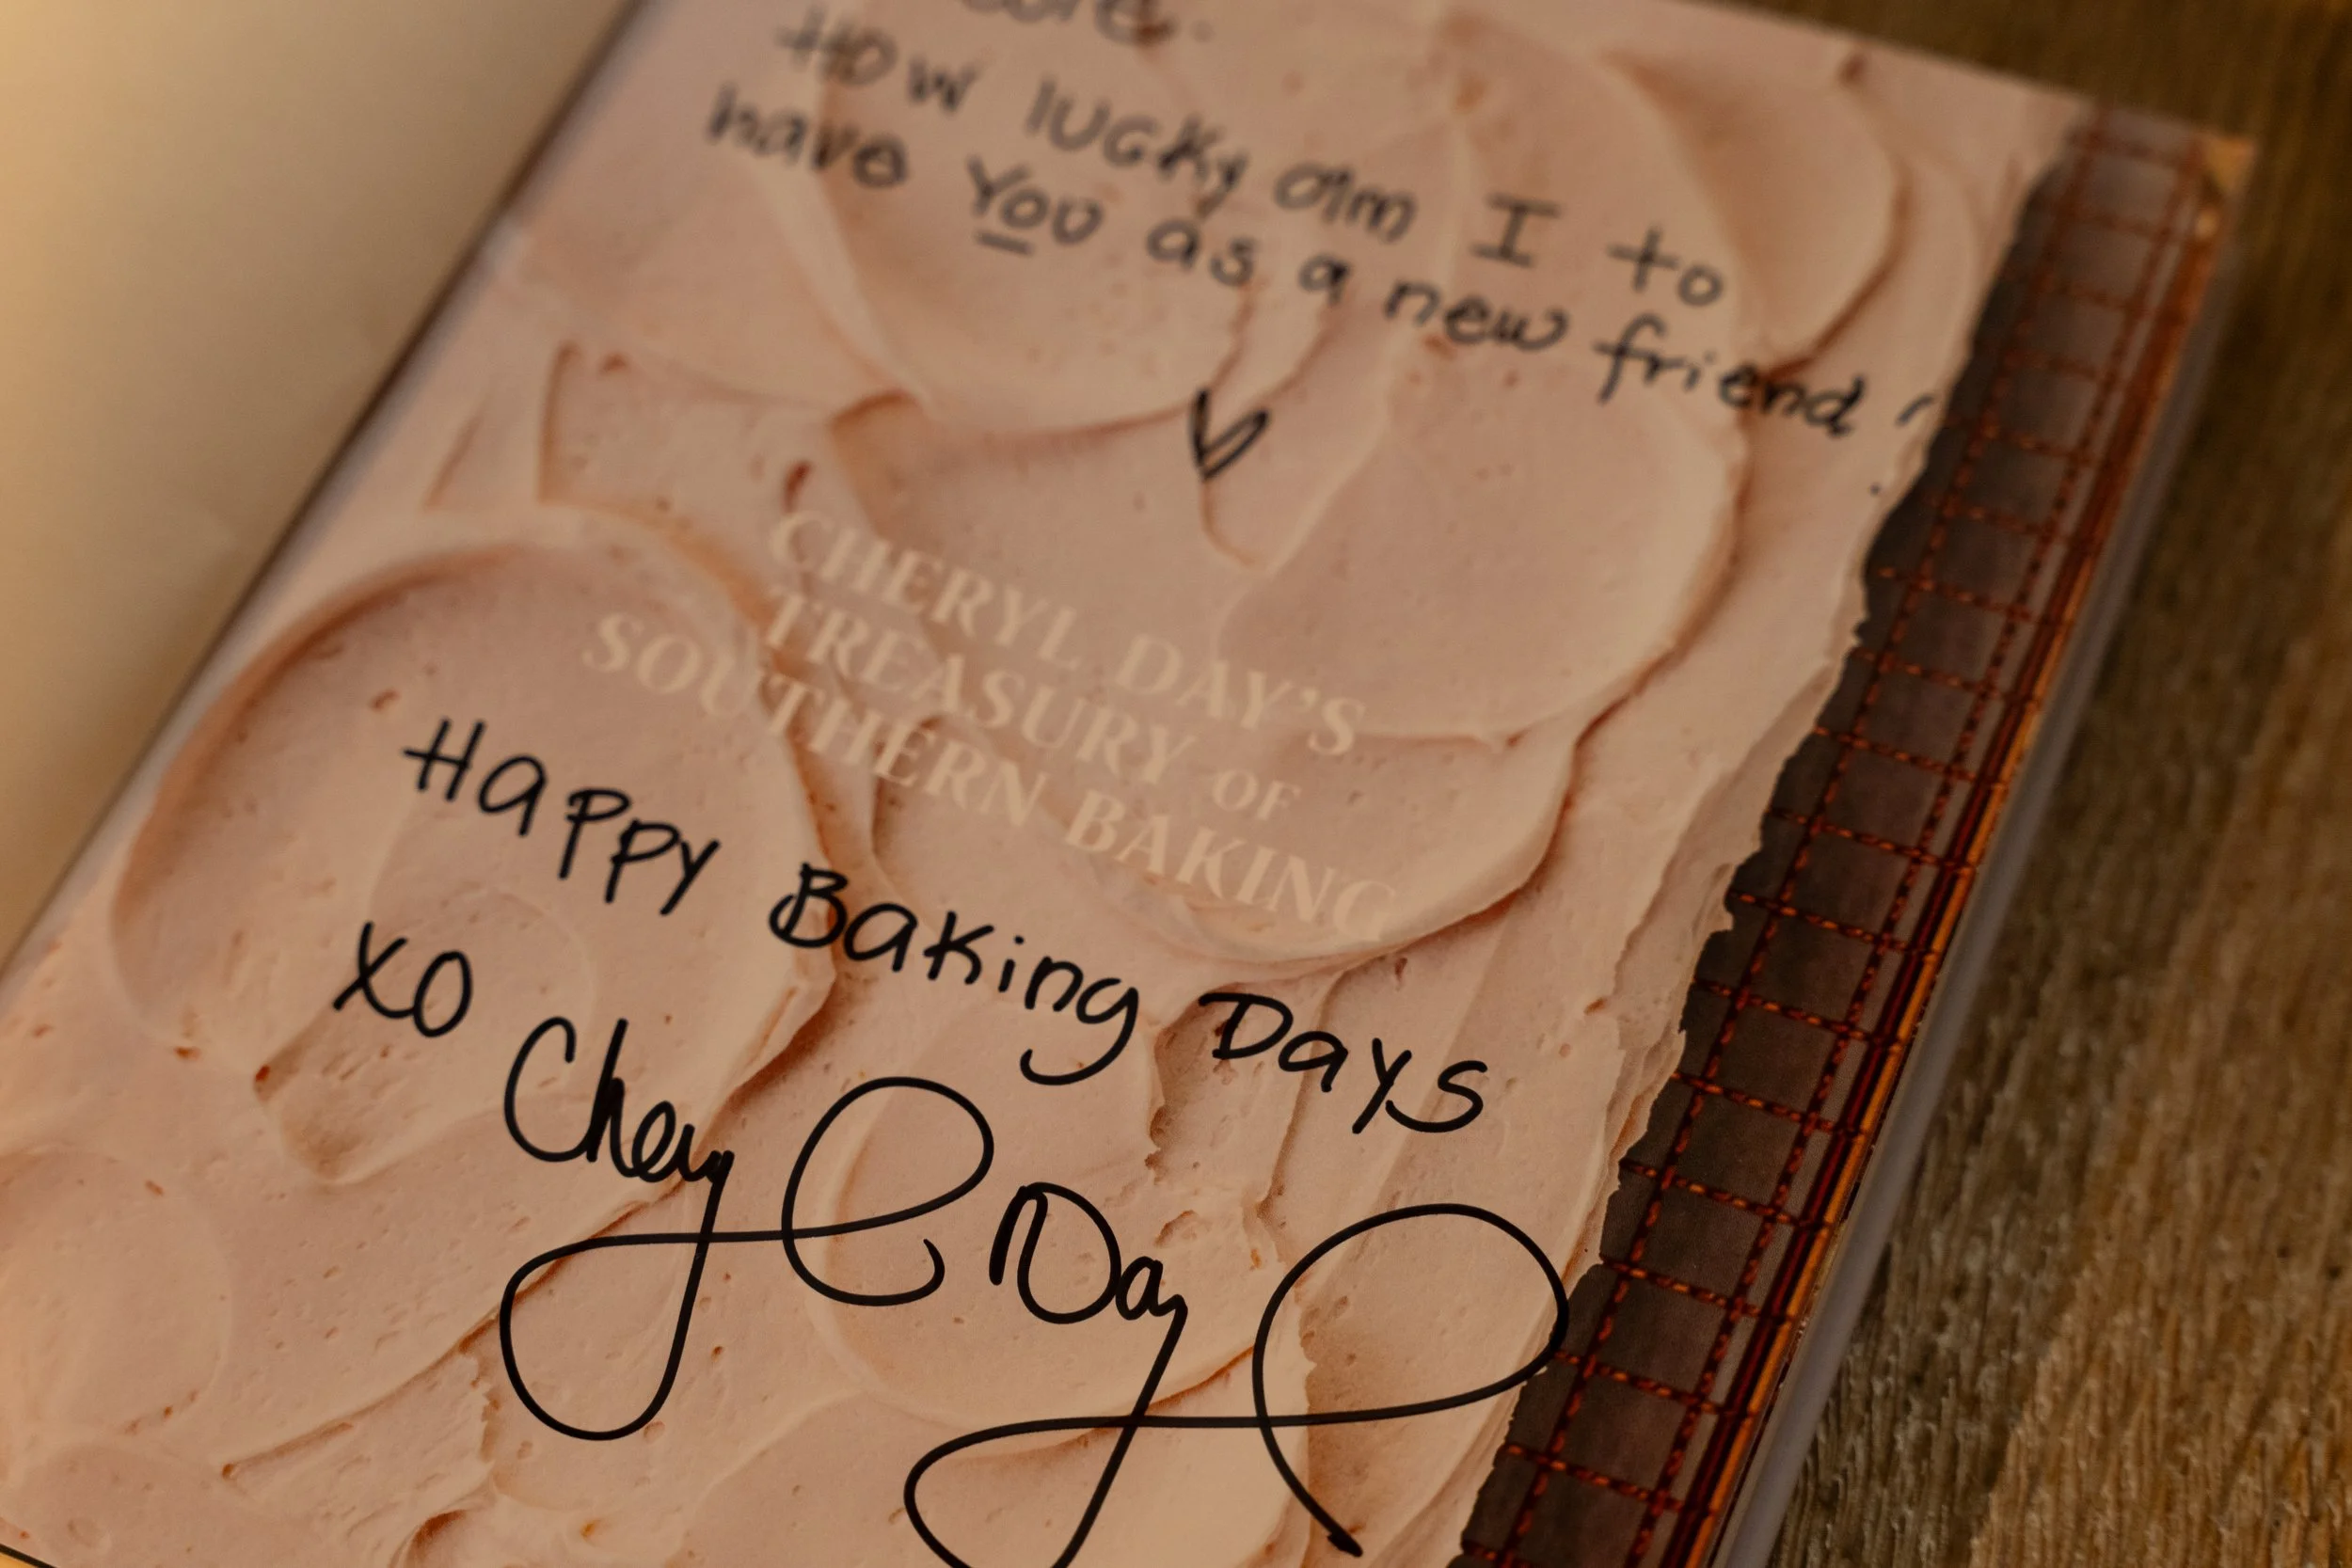 How lucky am I to
have You as a new friend!
CHERYL DAY'S
TREASURY OF
SOUTHERN BAKING
Happy Baking Days
XO
Cheryl Day